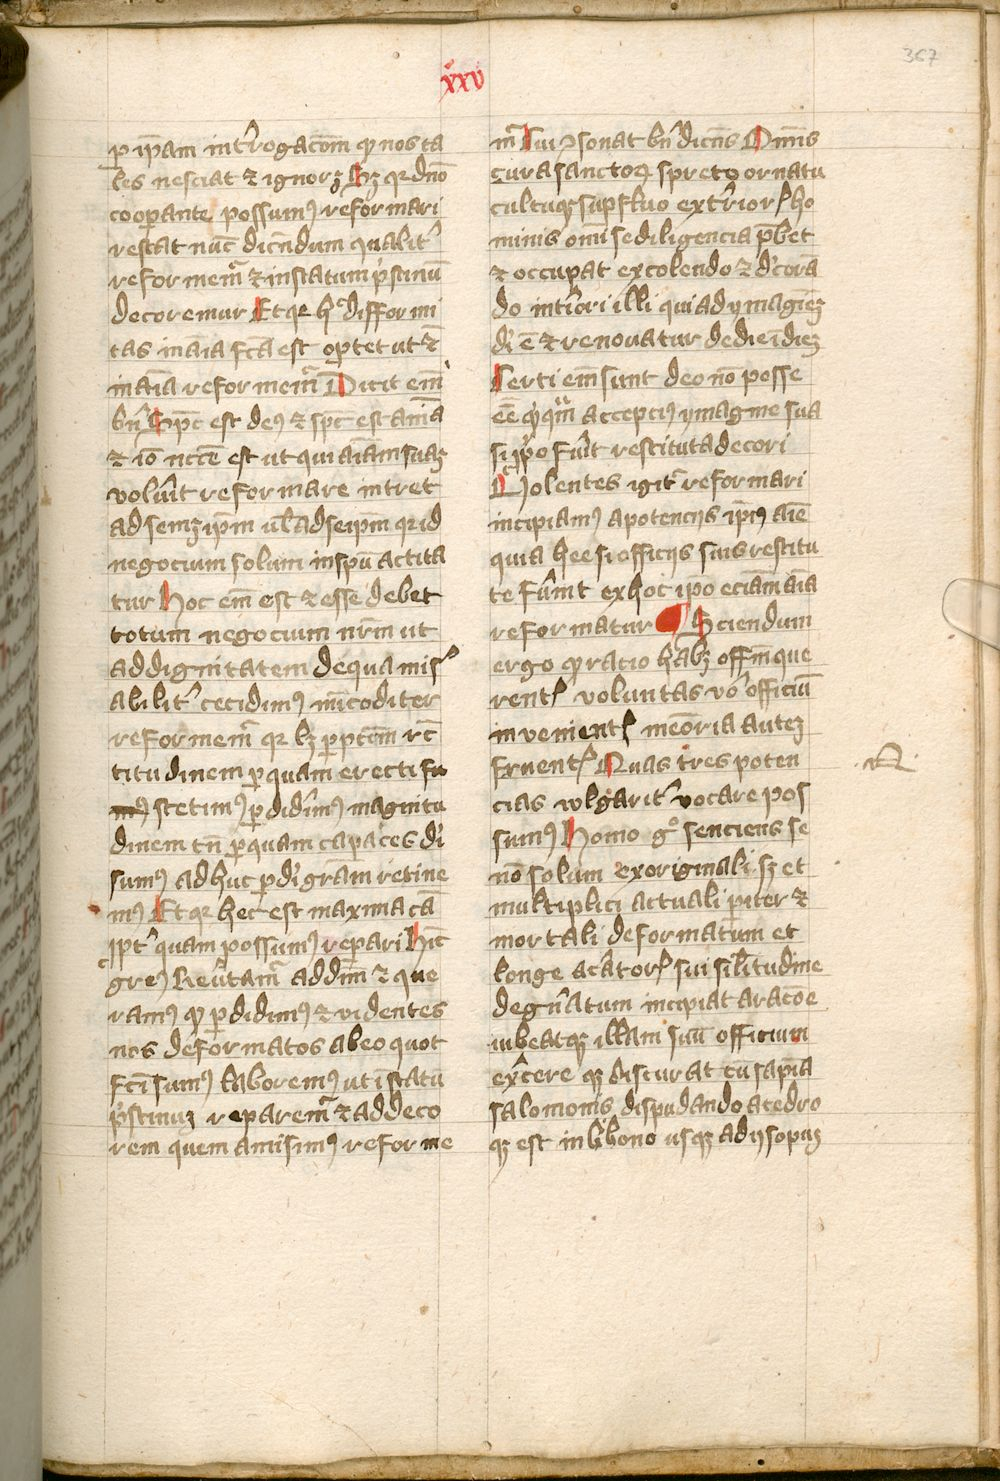 xxv
367
p ip̄am int̉rogac̄om̄ ꝙ nos ta
les nesciat ⁊ ignorꝫ Sꝫ qꝛ dn̄o
coop̄ante possumꝯ reformari
restat nūc dicendum qualit̉
reformem̉ ⁊ in statum p̉stinū
decoremur Et qꝛ h̉ diffformi
tas in aīa fc̄a est oportet ut ⁊
in aīa reformem̉ Dicit em̄
bn̄ Spc̄ est deꝯ ⁊ spc̄ est anīa
⁊ io̅ ncc̄e est ut qui aīam suaꝫ
volūit reformare intret
ad semꝫ ip̄m ul̄ ad seip̄m qꝛ id
negocium solum in spū actita
tur Hoc em̄ est ⁊ esse debet
totum negocium nr̄m ut
ad dignitatem de qua mis̉
abilit̉ cecidimꝯ mīcoditer
reformem̉ qꝛ lꝫ ꝑpt̄cm̄ rc̄
titudinem ꝑ quam erecti fu
mꝯ stetimꝯ ꝑdidim̉ꝯ magnitu
dinem tn̄ ꝑ quam capaces dī
sumꝯ ad huc ꝑ dī grām retine
mꝯ Et qꝛ hec est maxima cā
ipt̉ quam possumꝯ repari Hic̄
greꝯ Reūtam̉ ad dīm ⁊ que
ramꝯ ꝙ ꝑdidimꝯ ⁊ videntes
nos deformatos ab eo quot
fcī sumꝯ laboremꝯ ut ī statū
p̉stinuꝫ reparem̉ ⁊ ad deco
rem quem amisimꝯ reforme
m̉ Cui ↄsonat bn̄ dicēs Omīs
cura sanctoꝝ spreto ornatu
cultuqꝫ supfluo ext̉rioris ho
minis om̄i se diligencia p̄bet
⁊ occupat excolendo ⁊ d̉corā
do int̉iori illi qui ad ymagiēꝫ
dī ē ⁊ renouatur de die ī dieꝫ
Certi em̄ sunt deo nō posse
eē qͥcq̄m accepcius ymagine sua
si ꝓpo fūit restituta decori
Volentes igit̉ reformari
incipiamꝯ a potencijs ip̄ius aīe
quia hee si officijs suis restitu
te fūint ex hoc ipo eciam aīa
reformatur Sciendum
ergo ꝙ racio habꝫ offm̄ que
rentis voluntas vō officiū
invenientis meōria auteꝫ
fruentis Quas tres poten
cias wlgarit̉ vocare pos
sumꝯ Homo gͦ senciens se
nō solum ex originali sꝫ et
multiplici actuali piter ⁊
mortali deformatum et
longe a cātoris sui sil̄itudine
degn̄atum incipiat aracōe
iubeatqꝫ illam suū officium
ex̉cere qꝫ discurat cū sapīa
salomonis dispudando a cedro
qꝫ est in libono usqꝫ ad ysopuꝫ